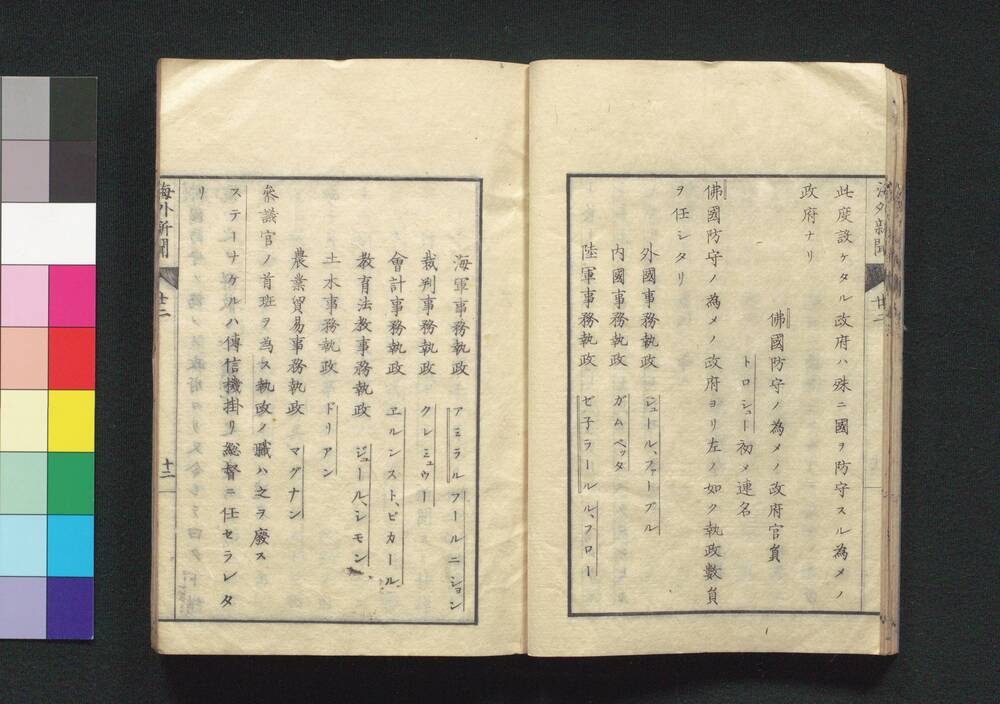 海外新聞 廿二
此度設ケタル政府ハ殊ニ國ヲ防守スル為メノ
政府ナリ
佛國防守ノ為メノ政府官員
トロシュー初メ連名
佛國防守ノ為メノ政府ヨリ左ノ如ク執政數員
ヲ任シタリ
外國事務執政 ジュール、ファーブル
内國事務執政 ガムベッタ
陸軍事務執政 ゼ子ラール ル、フロー
海軍事務執政 アミラルフールニション
裁判事務執政 クレミュウー
會計事務執政 エルンスト、ピカール
教育法教事務執政 ジュール、シモン
土木事務執政 ドリアン
農業貿易事務執政 マグナン
參議官ノ首班ヲ為ス執政ノ職ハ之ヲ廢ス
ステーナケルハ傳信機掛リ総督ニ任セラレタ
リ
海外新聞 廿二 十二